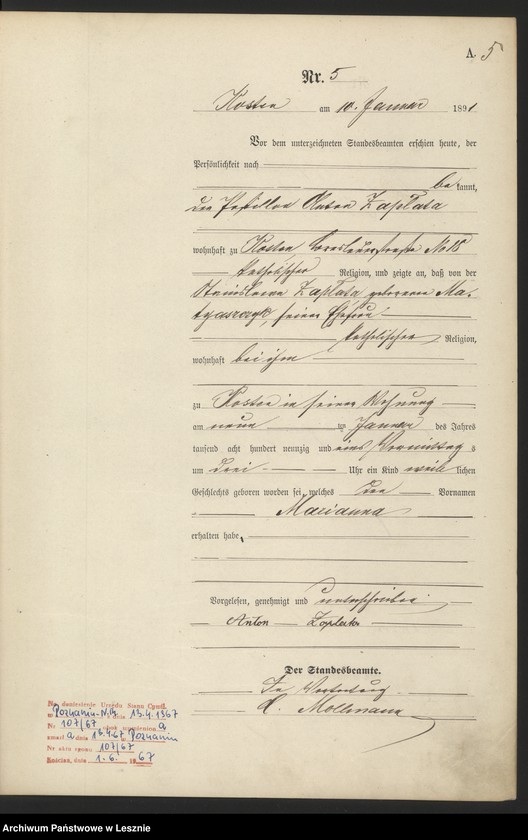 A. 5
Nr. 5
Kosten am 10. Januar 1891
Vor dem unterzeichneten Standesbeamten erschien heute, der
Persönlichkeit nach
bekannt,
der Postillon Anton Zaplata
wohnhaft zu Kosten Breslauerstraße No
katholischer Religion, und zeigte an, daß von der
Stanislawa Zaplata geborenen Ma-
tyaszczyk, seiner Ehefrau
katholischer Religion,
wohnhaft bei ihm
zu Kosten in seiner Wohnung
am neun ten Januar des Jahres
tausend acht hundert neunzig und eins Vormittag s
um drei Uhr ein Kind weib lichen
Geschlechts geboren worden sei, welches den Vornamen
Marianna
erhalten habe.
Vorgelesen, genehmigt und unterschrieben
Anton Zaplata
Der Standesbeamte.
In Vertretung
Mollmann
Na doniesienie Urzędu Stanu Cywil.
w Poznaniu-N.M. dnia 13.4.1967
Nr 107/67
zmarł a dnia w Poznaniu
Nr aktu zgonu 107/67
Kościan, dnia 1.6. 1967
Archiwum Państwowe w Lesznie